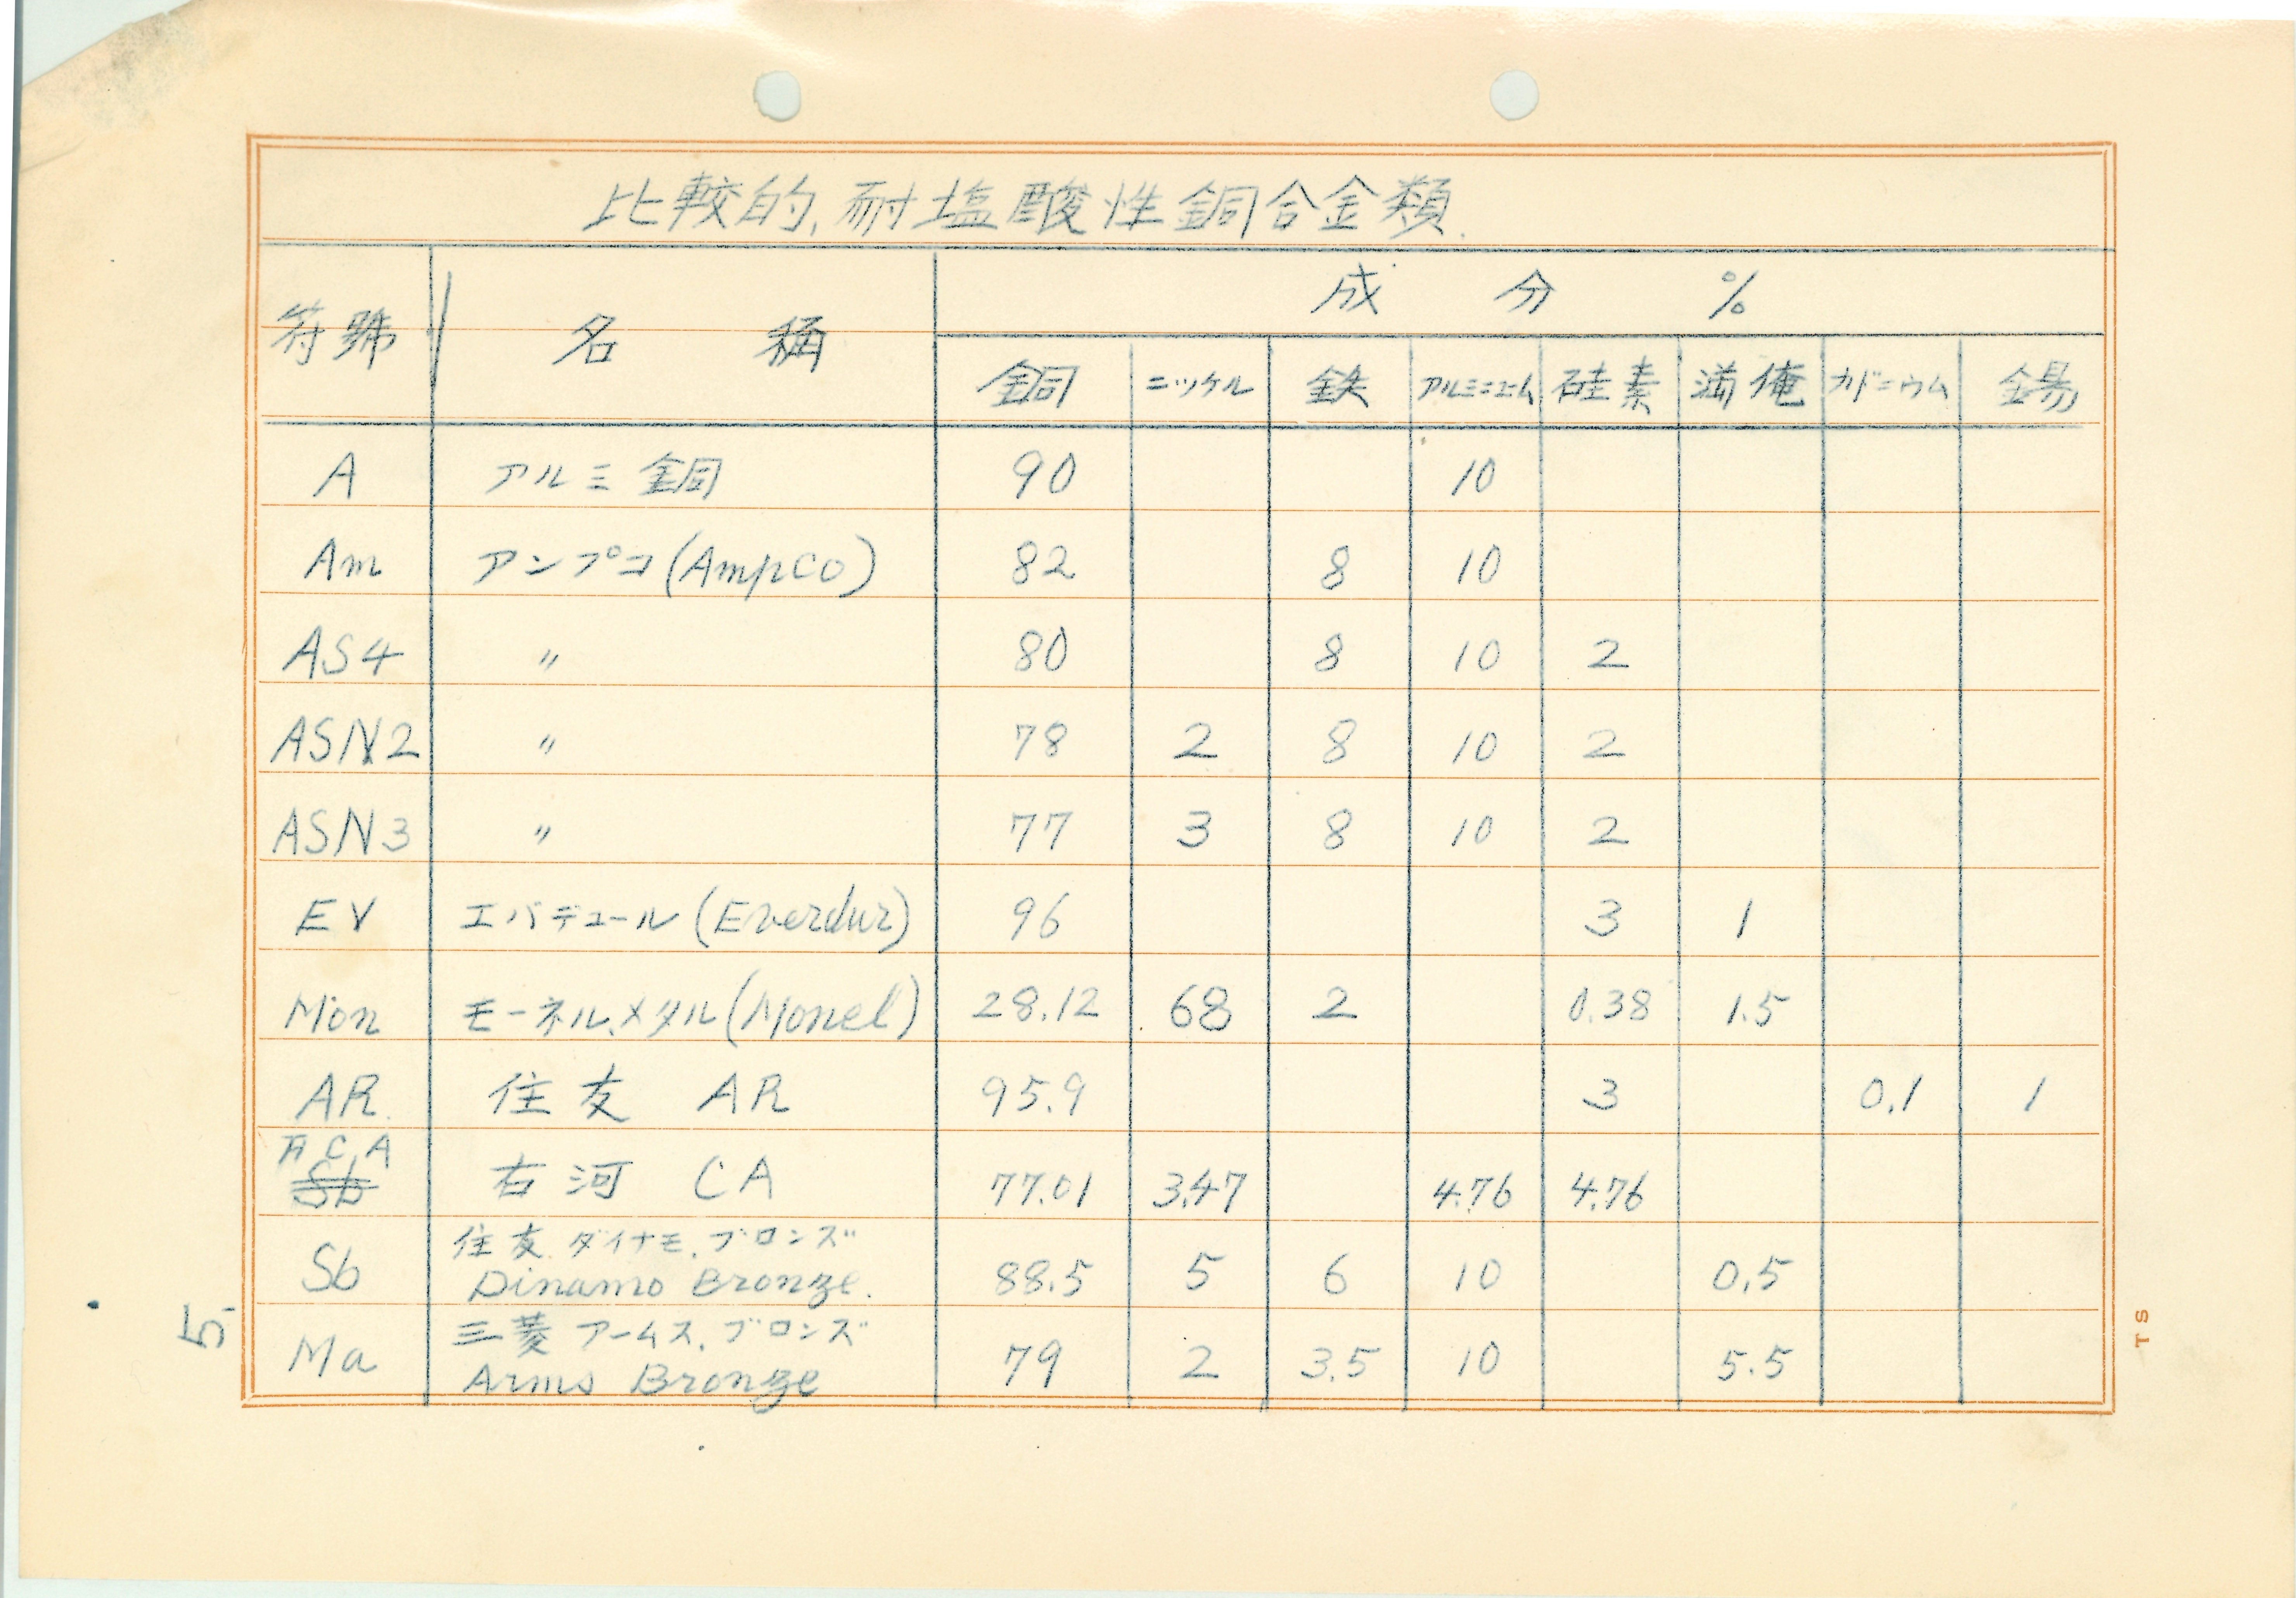 比較的,耐塩酸性銅合金類.
符號 名 稱 成 分 %
銅 ニッケル 鉄 アルミニューム 硅素 満俺 カドニウム 錫
A アルミ銅 90 10
Am アンプコ(Ampco) 82 8 10
AS4 〃 80 8 10 2
ASN2 〃 78 2 8 10 2
ASN3 〃 77 3 8 10 2
EV エバデュール(Everdur) 96 3 1
Mon モーネル.メタル(Monel) 28.12 68 2 0.38 1.5
AR. 住友 AR 95.9 3 0.1 1
C.A
Sb 右河 CA 77.01 3.47 4.76 4.76
住友.ダイナモ.ブロンズ
Sb Dinamo Bronze. 88.5 5 6 10 0.5
三菱 アームス.ブロンズ
Ma Arms Bronze 79 2 3.5 10 5.5
5.
TS